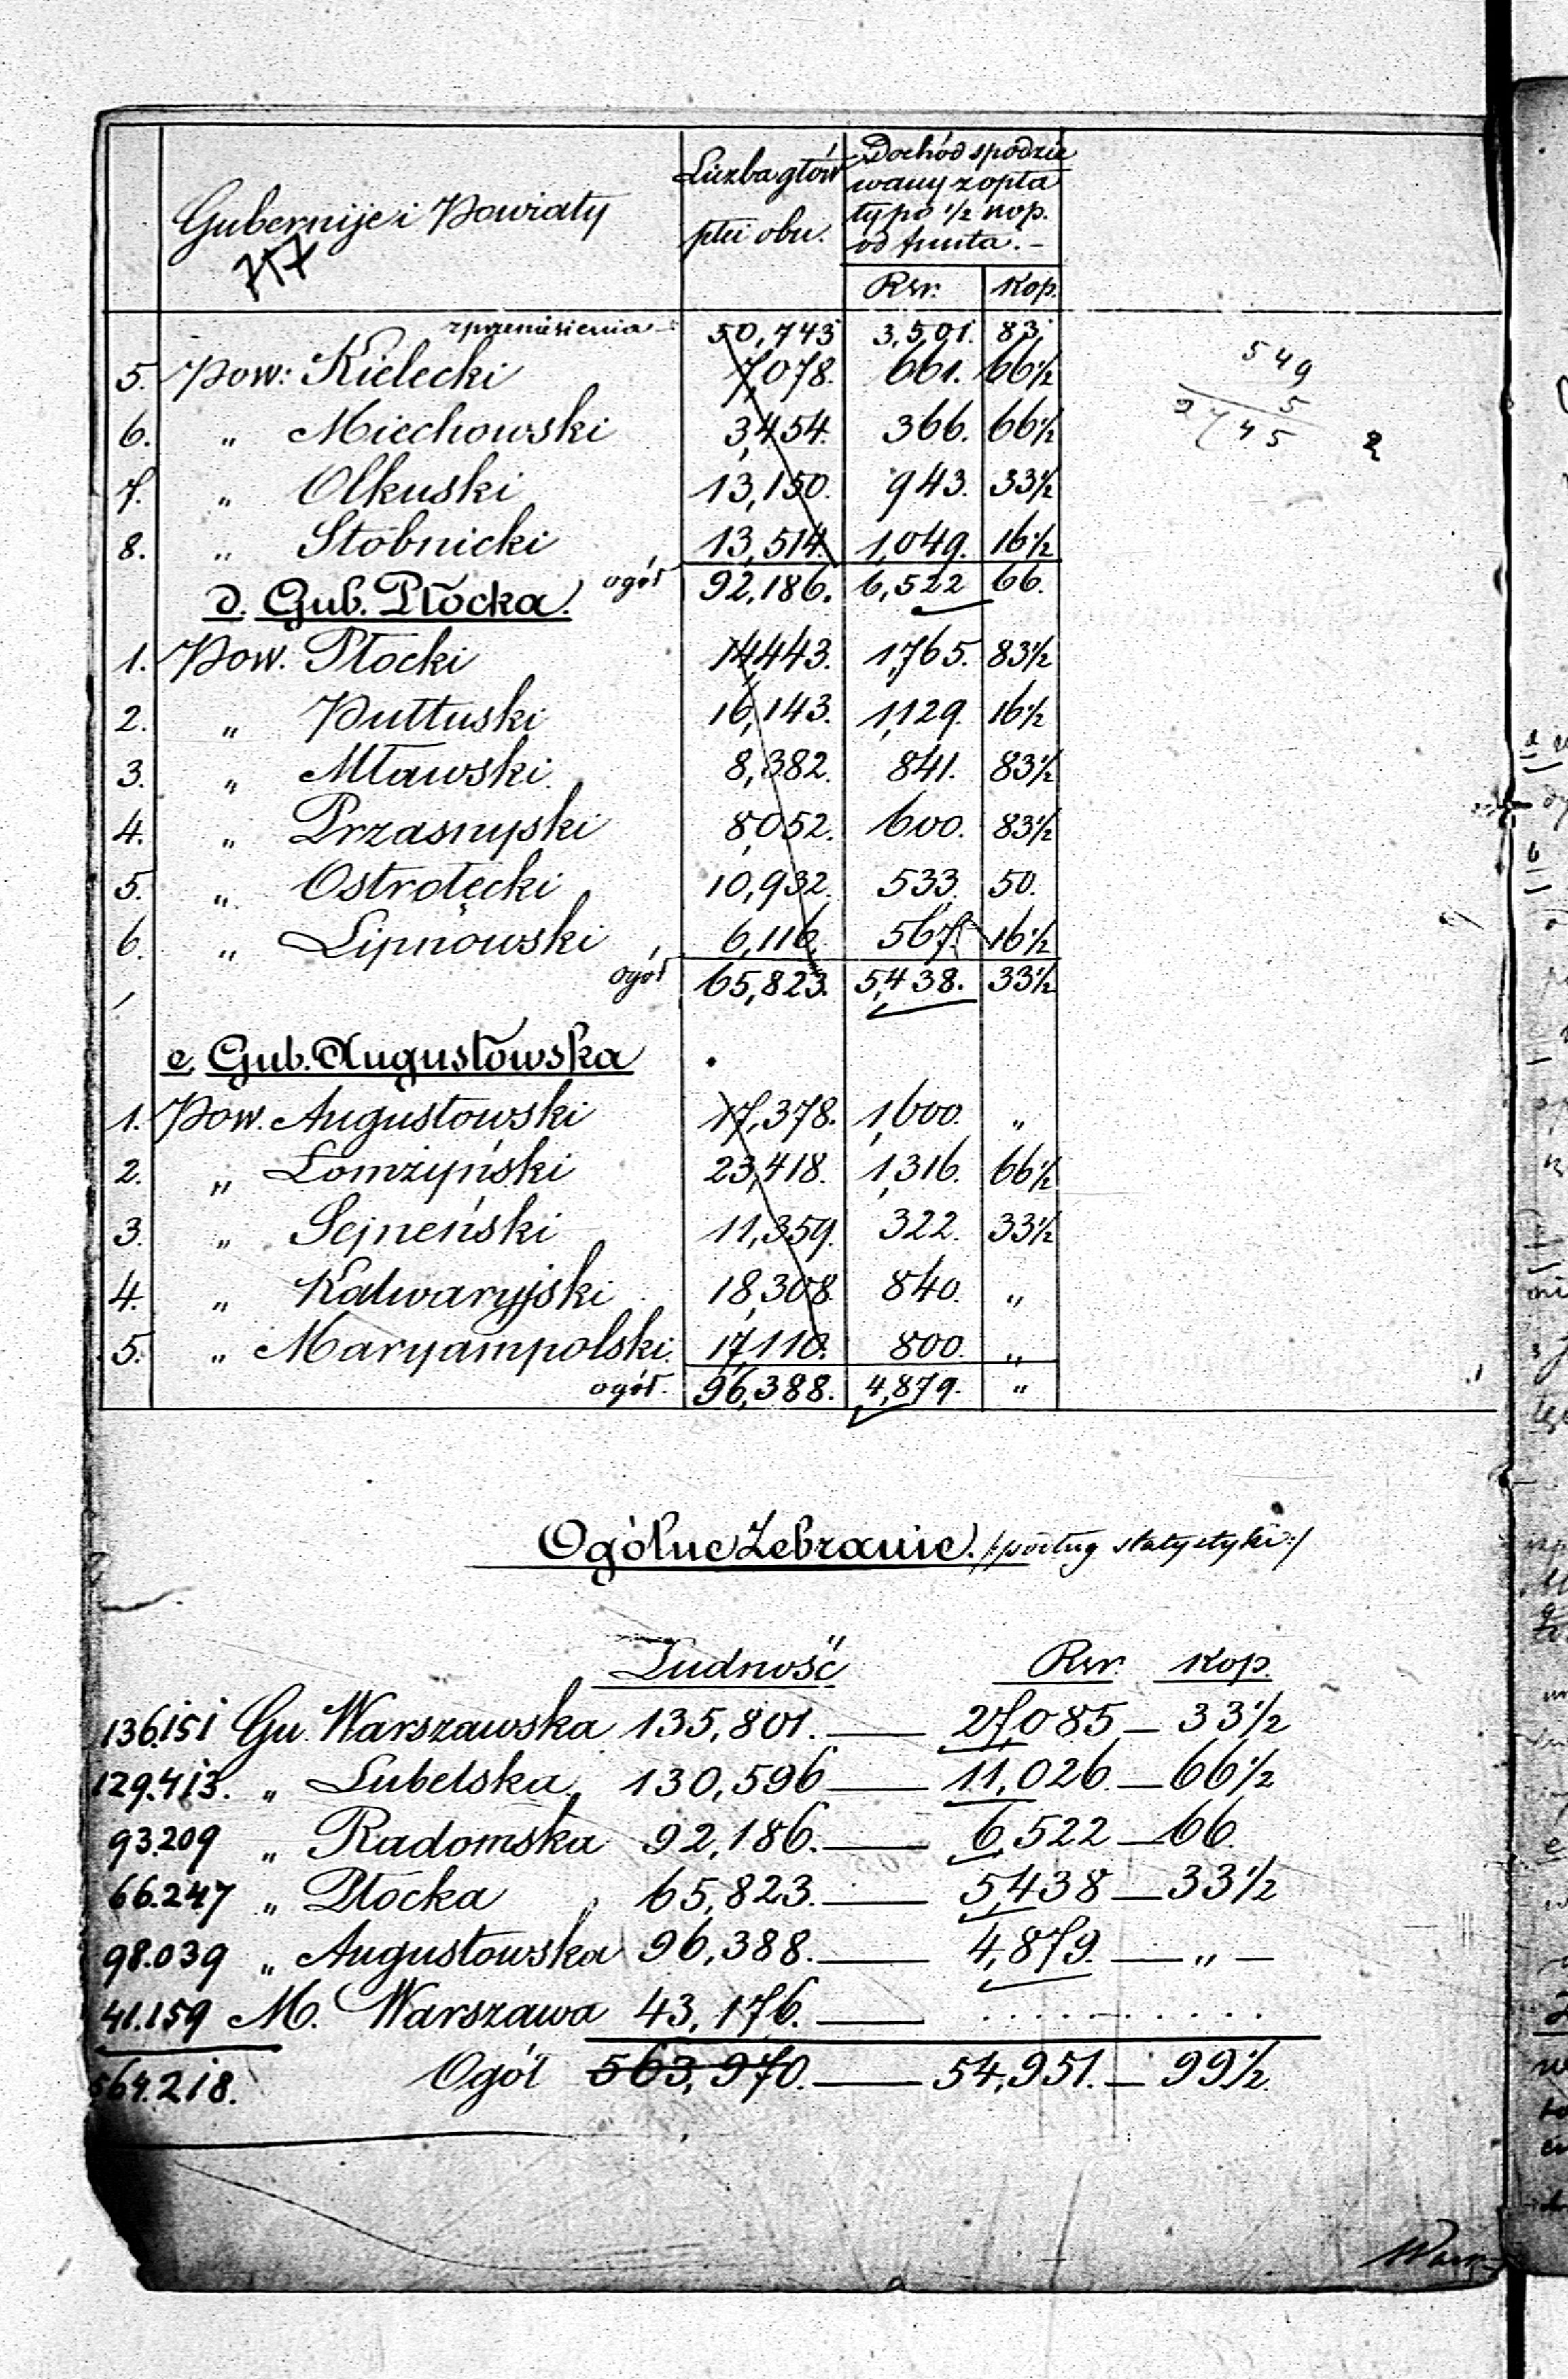 Gubernije i Powiaty
Liczba głów
płci obu.
Dochód spodzie
wany z opła
ty po ½ kop.
od funta. –
Rsr. Kop.
z przeniesienia 50,743 3,501. 83.
5. Pow: Kielecki 7,078. 661. 66½
6. „ Miechowski 3,454. 366. 66½
7. „ Olkuski 13,150. 943. 33½
8. „ Stobnicki 13,514. 1,049. 16½
ogół 92,186. 6,522 66.
d. Gub. Płocka.
1. Pow. Płocki 14,443. 1,765. 83½
2. „ Pułtuski 16,143. 1,129. 16½
3. „ Mławski. 8,382. 841. 83½
4. „ Przasnyski 8,052. 600. 83½
5. „ Ostrołęcki 10,932. 533. 50.
6. „ Lipnowski 6,116. 567. 16½
ogół 65,823. 5,438. 33½
e. Gub. Augustowska
1. Pow. Augustowski 17,378. 1,600. „
2. „ Łomżyński 23,418. 1,316. 66½
3. „ Sejneński 11,359. 322. 33½
4. „ Kalwaryjski 18,308 840. „
5. „ Maryampolski. 17,110. 800. „
ogół. 96,388. 4,879. „
549
5
2745
Ogólne Zebranie. /:podług statystyki:/
Ludność Rsr. Kop.
136.151 Gu. Warszawska 135,801. — 27,085 — 33½
129.413. „ Lubelska 130,596 — 11,026 — 66½
93.209 „ Radomska 92,186. — 6,522 — 66.
66.247 „ Płocka 65,823. — 5,438 — 33½
98.039 „ Augustowska 96,388. — 4,879. — „ —
41.159 M. Warszawa 43,176. — . . . . . . . . . .
564.218. Ogół 563,970. — 54,951. — 99½